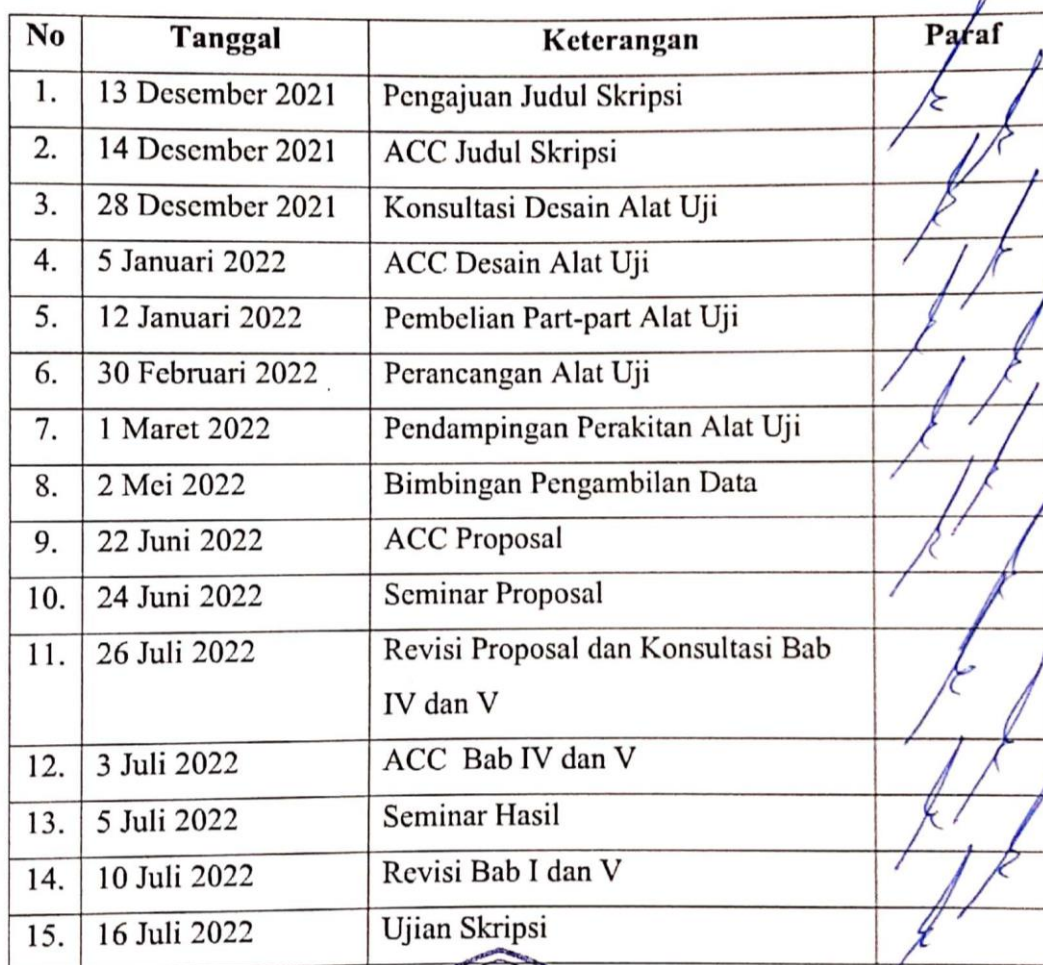 No Tanggal Keterangan Paraf
1. 13 Desember 2021 Pengajuan Judul Skripsi
2. 14 Desember 2021 ACC Judul Skripsi
3. 28 Desember 2021 Konsultasi Desain Alat Uji
4. 5 Januari 2022 ACC Desain Alat Uji
5. 12 Januari 2022 Pembelian Part-part Alat Uji
6. 30 Februari 2022 Perancangan Alat Uji
7. 1 Maret 2022 Pendampingan Perakitan Alat Uji
8. 2 Mei 2022 Bimbingan Pengambilan Data
9. 22 Juni 2022 ACC Proposal
10. 24 Juni 2022 Seminar Proposal
11. 26 Juli 2022 Revisi Proposal dan Konsultasi Bab
IV dan V
12. 3 Juli 2022 ACC Bab IV dan V
13. 5 Juli 2022 Seminar Hasil
14. 10 Juli 2022 Revisi Bab I dan V
15. 16 Juli 2022 Ujian Skripsi